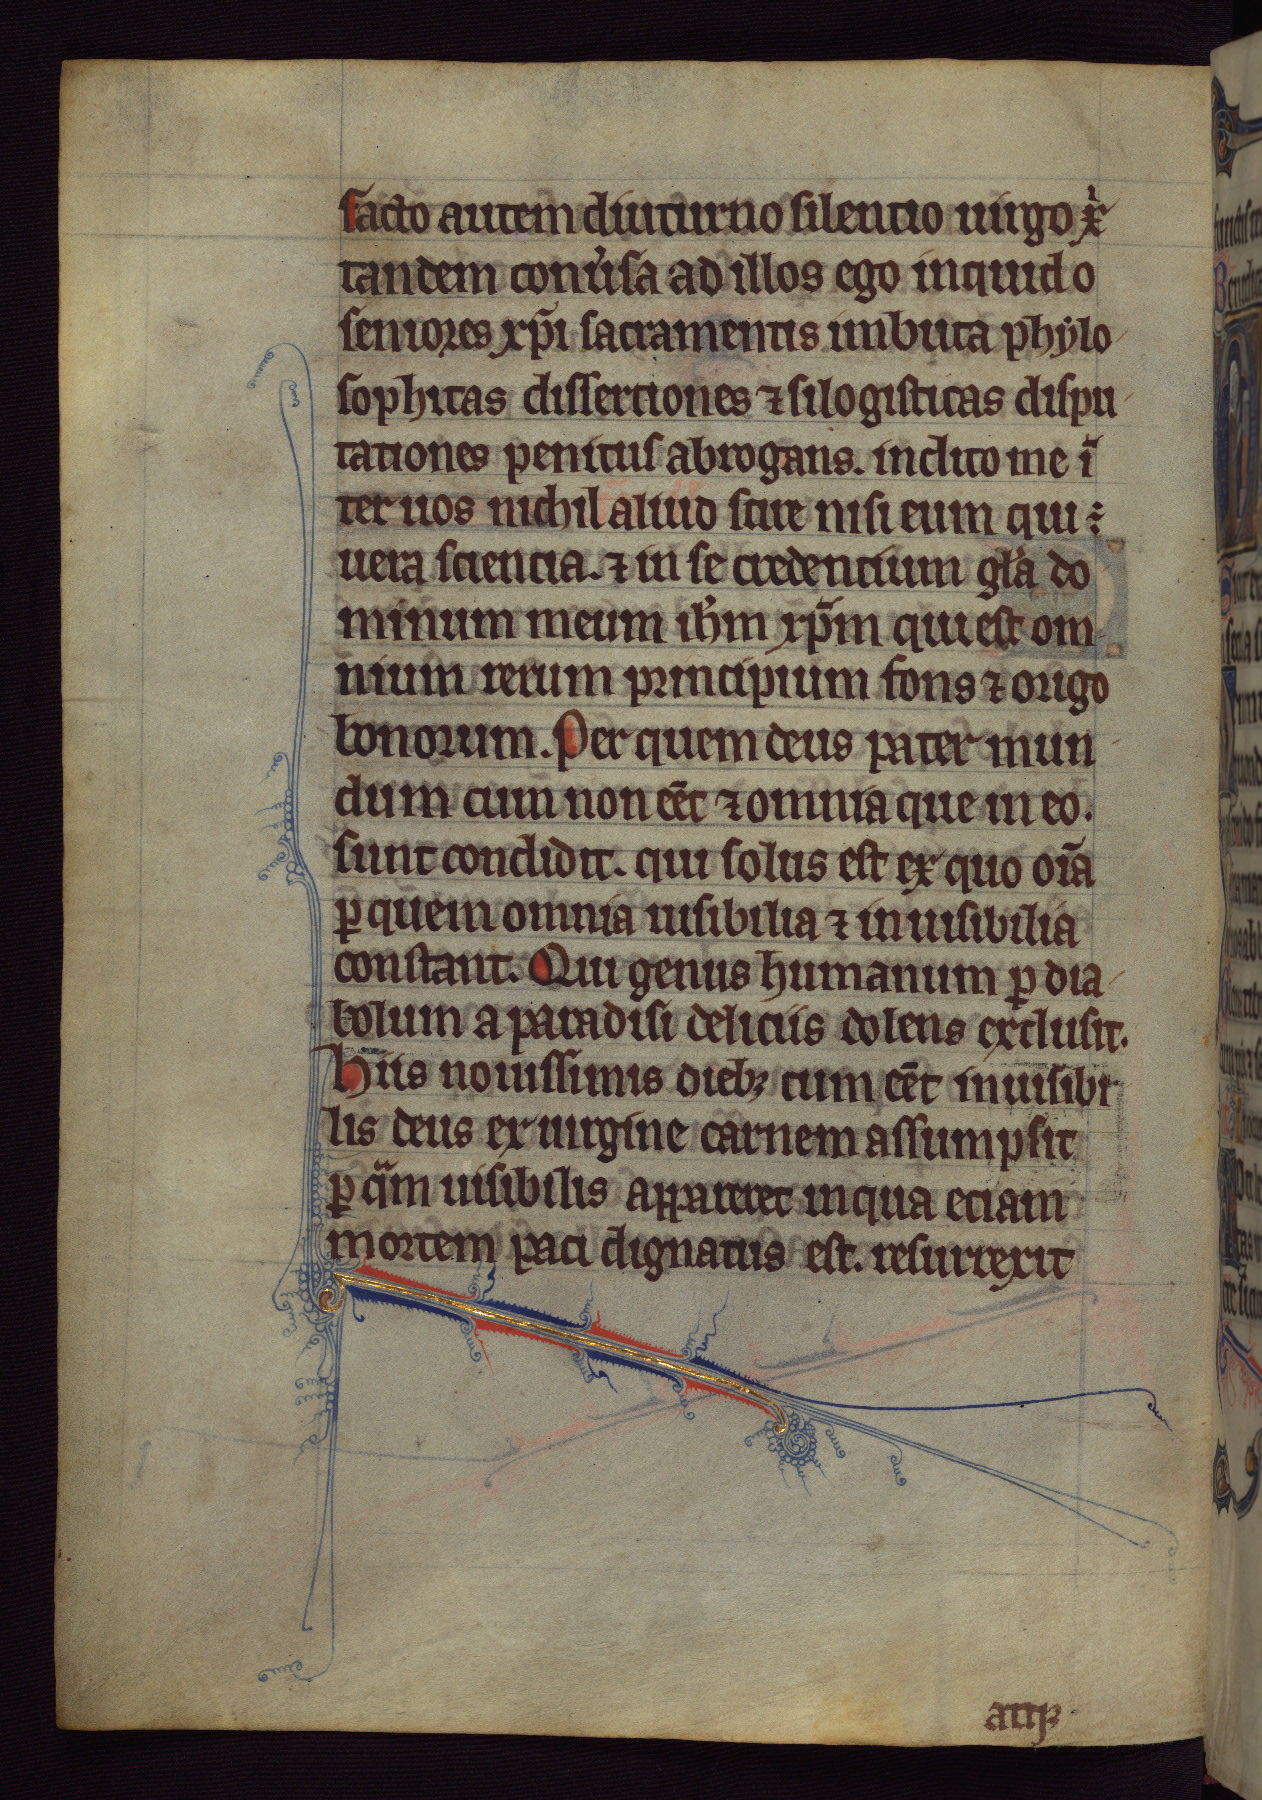 facto autem diuturno silentio uirgo xͥ
tandem conu̾sa ad illos ego inquid o
seniores xp̄i sacramentis imbuta phẏlo
sophicas dissertiones ⁊ silogisticas dispu
tationes penitus abrogans. indico me ī
ter uos nichil aliud scire nisi eum qui ÷
uera sciencia. ⁊ in se credencium gl̾a do
minum meum ih̾m xp̄m qui est om
nium rerum principium fons ⁊ origo
bonorum. Per quem deus pater mun
dum cum non eēt ⁊ omnia que in eo.
sunt condidit. qui solus est ex quo oīa
ꝑ quem omnia uisibilia ⁊ inuisibilia
constant. Qui genus humanum ꝑ dia
bolum a paradisi deliciis dolens exclusit.
Hiis nouissimis dieb; cum eēt inuisibi
lis deus ex uirgine carnem assumpsit
ꝑ qᷓm uisibilis appareret in qua eciam
mortem pati dignatus est. resurrexit